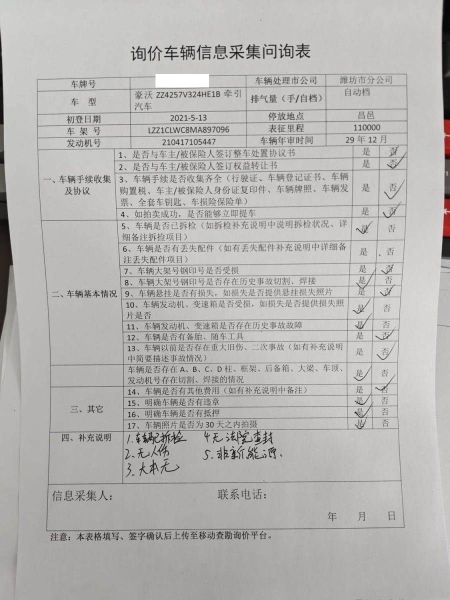 询价车辆信息采集问询表
车牌号 车辆处理市公司 潍坊市分公司
车 型 豪沃 ZZ4257V324HE1B 牵引汽车 排气量（手/自档） 自动档
初登日期 2021-5-13 停放地点 昌邑
车 架 号 LZZ1CLWC8MA897096 表征里程 110000
发动机号 210417105447 车辆年审时间 29 年 12 月
一、车辆手续收集及协议
1、是否与车主/被保险人签订整车处置协议书 是 否
2、是否与车主/被保险人签订权益转让书 是 否
3、车辆手续是否收集齐全（行驶证、车辆登记证书、车辆
购置税、车主/被保险人身份证复印件、车辆牌照、车辆发
票、全套车钥匙、车损险保险单） 是 否
4、如拍卖成功，是否能够立即提车 是 否
二、车辆基本情况
5、车辆是否已拆检（如拆检补充说明中说明拆检状况、详
细备注拆检项目） 是 否
6、车辆是否有丢失配件（如有丢失配件补充说明中详细备
注丢失配件项目） 是 否
7、车辆大架号钢印号是否受损 是 否
8、车辆大架号钢印号是否存在历史事故切割、焊接 是 否
9、车辆悬挂是否有损失，如损失是否提供悬挂损失照片 是 否
10、车辆发动机、变速箱是否受损，如损失是否提供损失照
片是否 是 否
11、车辆发动机、变速箱是否存在历史事故故障 是 否
12、车辆是否有备胎、随车工具 是 否
13、车辆以前是否存在重大旧伤、二次事故（如有补充说明
中简要描述事故情况） 是 否
车辆是否存在 A、B、C、D 柱、框架、后备箱、大梁、车顶、
发动机号存在切割、焊接的情况 是 否
三、其它
14、车辆是否有其他费用（如有补充说明中备注） 是 否
15、明确车辆是否有违章 是 否
16、明确车辆是否有抵押 是 否
17、车辆照片是否为 30 天之内拍摄 是 否
四、补充说明
1.车辆已拆检 4无法院查封
2.无人伤 5.非新能源.
3.大本无
信息采集人： 联系电话：
年 月 日
注意：本表格填写、签字确认后上传至移动查勘询价平台。